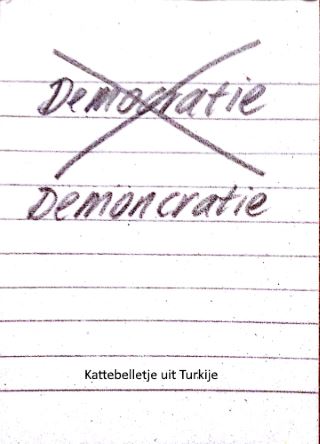 Democratie
Demoncratie
Kattebelletje uit Turkije